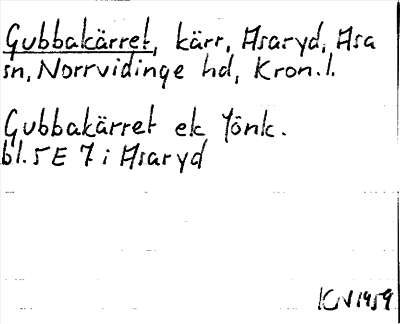 Gubbakärret, kärr, Asaryd, Asa
sn, Norrvidinge hd, Kron. l.
Gubbakärret ek Jönk.
bl. 5 E 7 i Asaryd
KV 1959